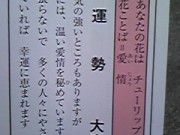 あなたの花は チューリップ
花ことば＝愛情
運勢 大
気の強いところもありますが
には、温い愛情を秘めています
張らないで 多くの人々にやさ
いれば 幸運に恵まれます